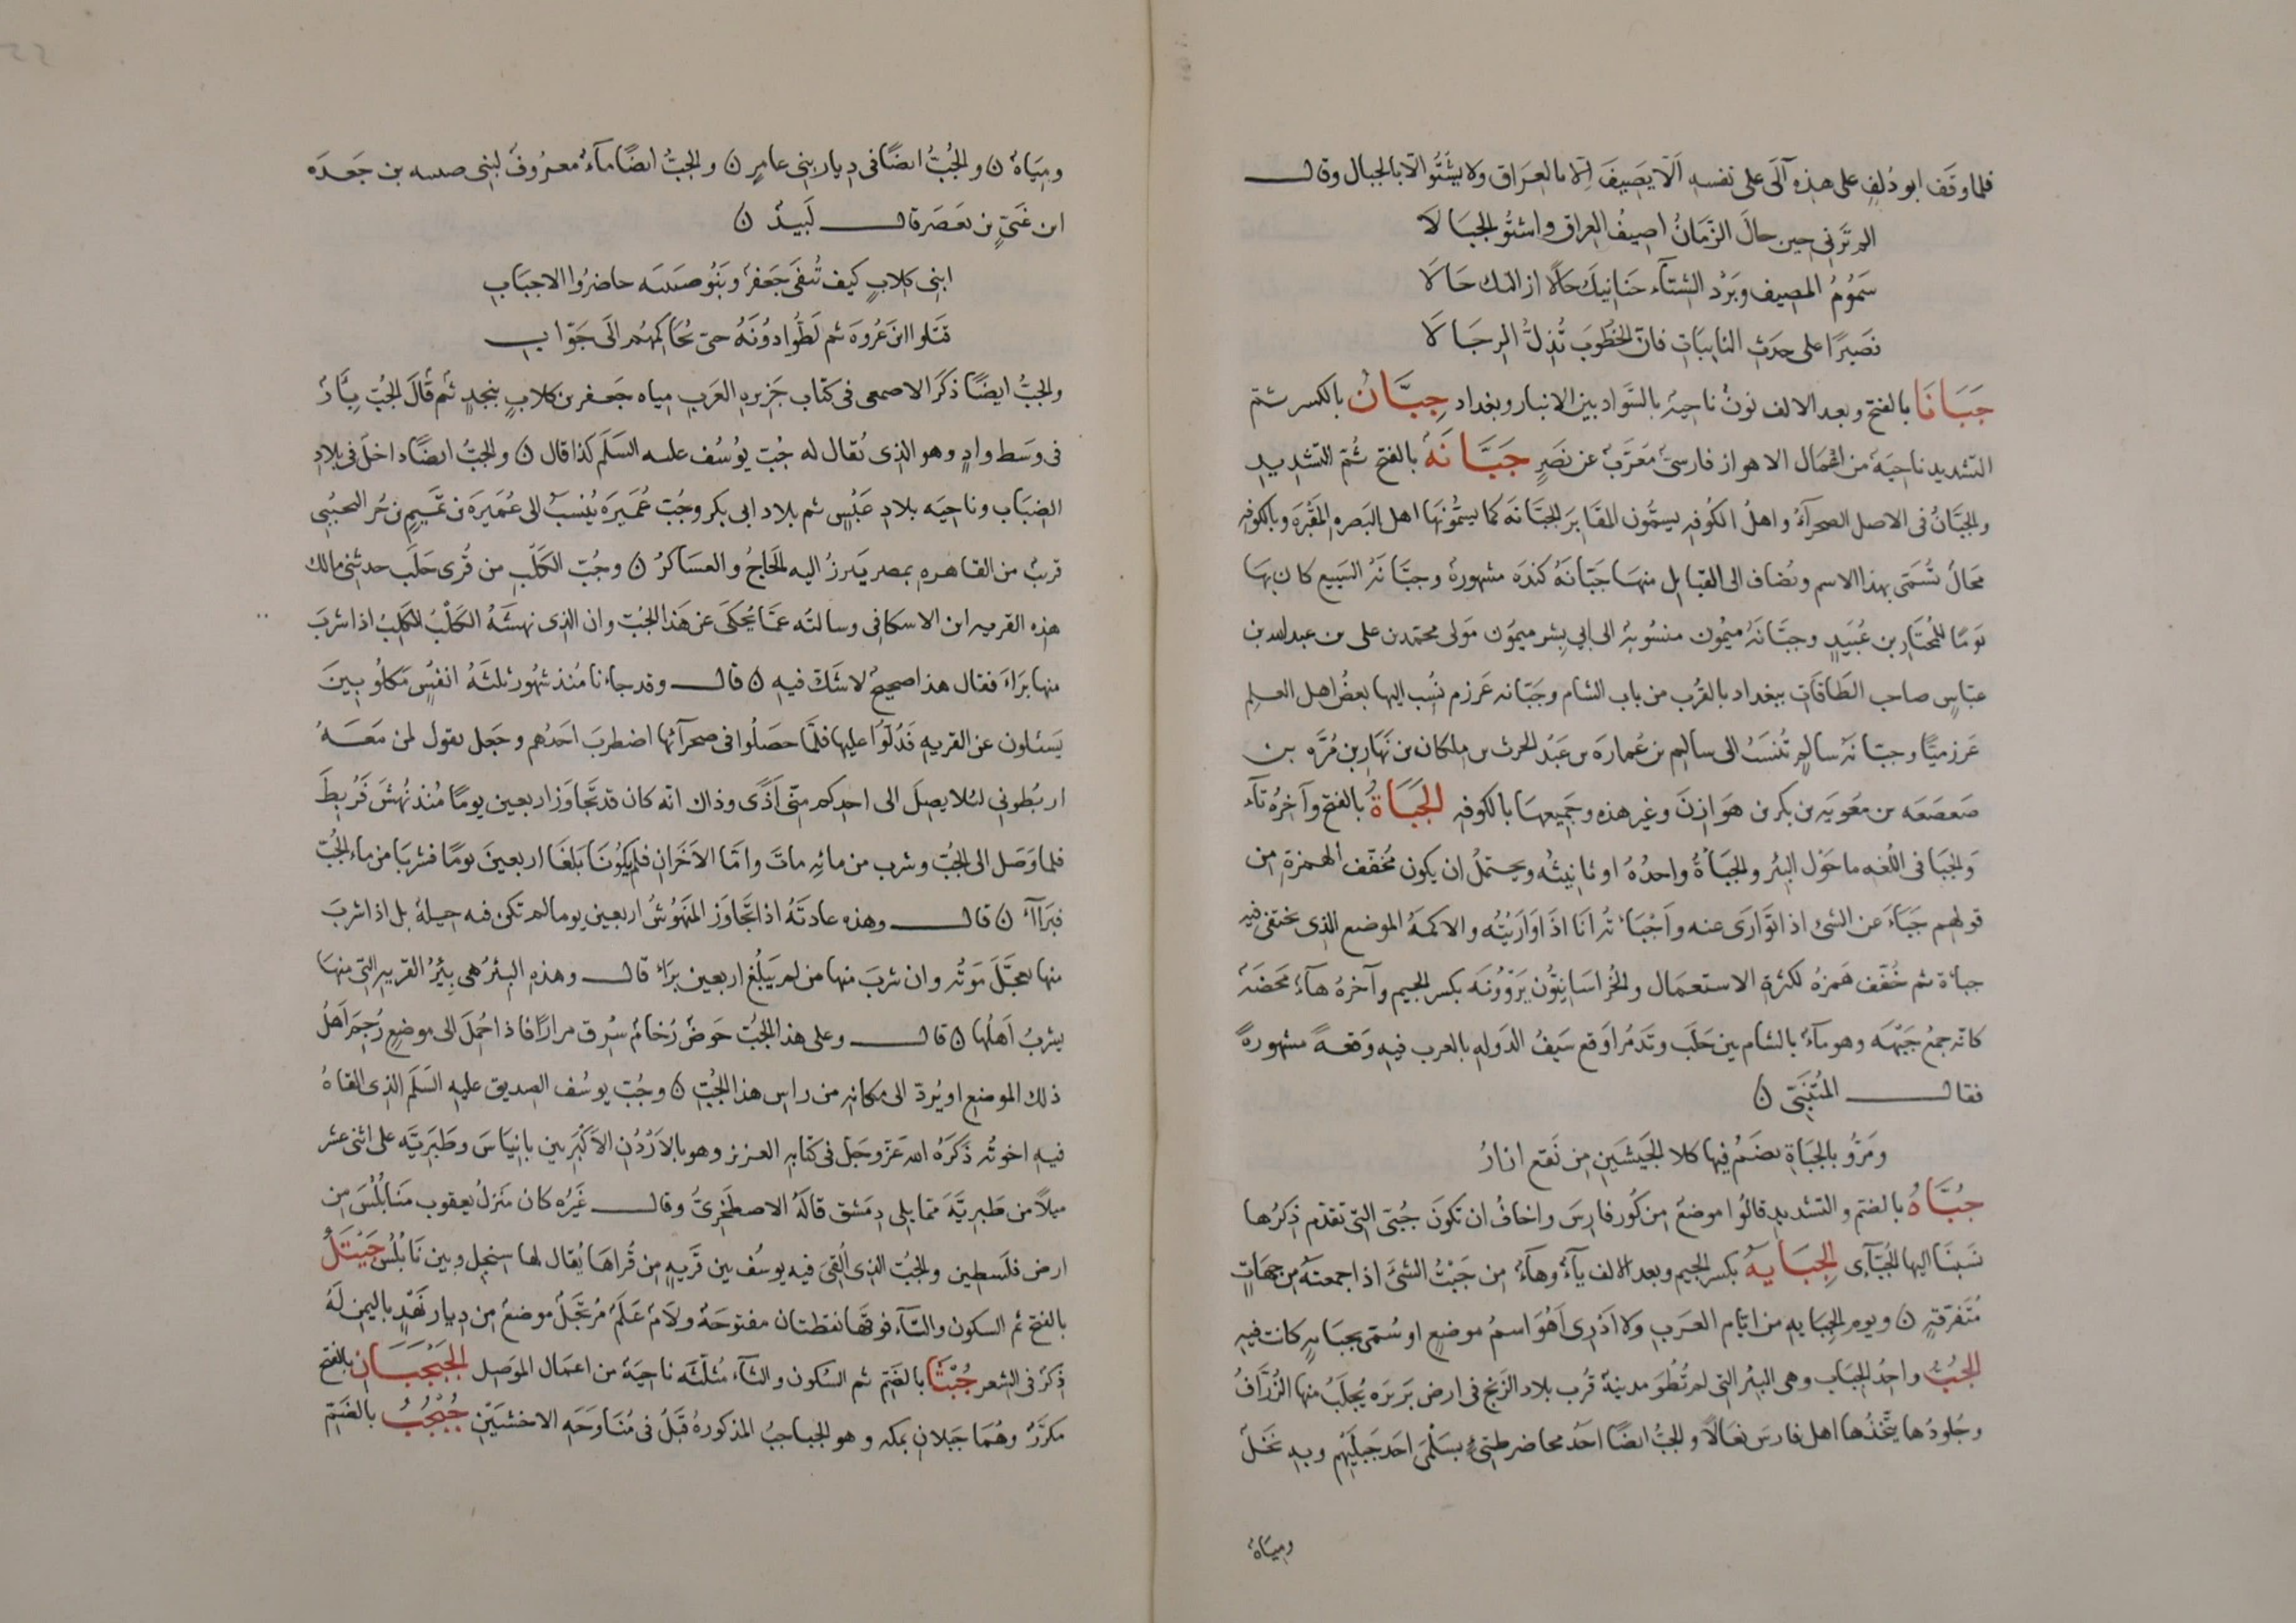 فلما وقف ابو دُلفٍ على هذه آلَى على نفسه اَلّا يَصِيفَ اِلّا بالعِرَاق ولا يشتُوا الّا بالجبال وقال
الم ترَنى حين حالَ الزَّمَانُ اصيفُ العراق واشتُو الجبَالَا
سَمُومُ المصِيف وبَرْدُ الشتآء حَنَانيكَ حالًا ازالتك حَالَا
فصَبرًا على حدَثِ النايبَاتِ فانّ الخطُوبَ تُذِلُّ الرجَالَا
جَبَانَا بالفتح وبعد الالف نونٌ ناحيةٌ بالسَّواد بين الانبار وبغداد جِبَّانُ بالكسر ثمّ
التشديد ناحيَة من اعْمَال الاهواز فارسىٌّ مُعَرّبٌ عن نَصَرٍ جَبَّانَة بالفتح ثُمّ التشديد
والجبّانُ فى الاصل الصحرآءُ واهلُ الكوفه يسمُّون المقَابرَ الجبّانَة كما يسمُّونها اهل البَصره المقبُرَه وبالكوفه
مَحَالُّ تُسَمّى بهذا الاسم وتُضاف الى القبَايل منهَا جَبّانَة كندَه مشهورةٌ وجبَّانَة السَبِيع كان بهَا
يومًا للمُختَار بن عُبَيدٍ وجبَّانَةُ ميمُون منسُوبة الى ابى بِشر ميمُون مَولى محمّد بن على بن عبدالله بن
عبّاسٍ صاحب الطَاقَاتِ ببغداد بالقُرب من باب الشام وجَبّانه عَرزم نُسِب اليها بعضُ اهل العِلم
عَرزميًّا وجبّانَة سالم تُنسَبُ الى سالم بن عُمارَه بن عَبْد الحرث بن ملكان بن نَهَار بن مُرَّه بن
صَعصَعَه بن معَويَه بن بكر بن هوَازنَ وغير هذه وجَميعهَا بالكوفه الجَبَاةُ بالفتح وآخرُهُ تآء
وَالجبَا فى اللّغه ما حَوْل البِئر والجبَاةُ واحدُهُ او تانيثُه ويحتملُ ان يكون مُخفّف الهمزةِ من
قولهم جَبَاءَ عن الشئ اذا توَارَى عنه وَاَجْبَاتُه اَنَا اذَا وَارَيْتُه والاكمَة الموضع الذى يختفى فيه
جباة ثم خُفّف هَمزهُ لكثرةِ الاستعمَال والخُراسَانيّون يَرّوُونَه بكسر الجيم وآخرهُ هآءٌ مَحَضَةٌ
كانّه جمعُ جَبْهَه وهو مآءٌ بالشام بين حَلَب وتَدمُر اوَقع سَيفُ الدَوله بالعرب فيه وَقعةً مشهورةً
فقال المُتنَبّى ن
ومَرّو بالجبَاةِ يضَمُّ فيها كلا الجَيشَينِ من نَقع ازارُ
جُبَّاهُ بالضم والتشديد قالُوا موضعٌ من كُور فارسَ واخافُ ان تكونَ جُبّى التى تقدّم ذِكرُها
نَسبنَا اليها الجُبّآى الجبَايَه بكسر الجيم وبعد الالف يآءٌ وهآءٌ من جَبَيْتُ الشئَ اذا جمعتَهُ من جهَاتٍ
مُتَفرّقةٍ ن ويوم الجبَايه من ايّام العرَب ولا اَدْرى اَهُوَ اسمُ موضعٍ او سُمّى بجبَايهٍ كانت فيه
الجُبُّ واحِدُ الجبَاب وهى البِئر التى لم تُطْوَ مدينةٌ قُرب بلاد الزَنج فى ارض بَربَرَه يُجلَبُ منها الزُرَّافُ
وجُلودُها يتّخذُها اهل فارسَ نعَالًا والجبُّ ايضًا احَدُ محاضر طيّئٍ بسَلْمَى احَد جَبَلَيْهم وبه نَخلٌ
وميَاهٌ
وميَاهٌ ن والجُبُّ ايضًا فى ديار بنى عامرٍ ن والجبُّ ايضًا مآءٌ معرُوفٌ لبنى صبينه بن جَعدَه
ابن غَنىّ بن يعصَر قال لَبيدٌ ن
ابنى كلابٍ كيف تُنفَى جَعفرٌ وبنُو صَبينَه حاضرُوا الاجبَابِ
قتَلوا ابنَ عُروَة ثم لَطُّوا دُونَهُ حتى تُحَاكمهُم الَى جَوّابِ
والجبُّ ايضًا ذكَرَ الاصمعى فى كتاب جَزيرهِ العرَب مياه جَعفر بن كلابٍ بنجدٍ ثم قَالَ الجُبّ بيَارٌ
فى وسَط وادٍ وهو الذى يُقال له جُبّ يُوسُف عليه السَلَم كذا قال ن والجبُّ ايضًا داخلٌ فى بلادِ
الضبَاب وناحيَه بلاد عَبْسٍ ثم بلاد ابى بكر وجُبّ عُمَيرَة يُنسَبُ الى عُمَيرَة بن تميم بن جُز التجيبى
قريبٌ من القاهره بمصر يَبرزُ اليه الحَاجُ والعسَاكرُ ن وجُبّ الكَلْب من قُرى حَلَب حدثنى مالك
هذه القريه ابن الاسكافى وسالتُه عمّا يُحكَى عن هَذا الجُبّ وان الذى نهشَهُ الكَلْبُ الكَلِبُ اذا شربَ
منها بَرَاءَ فقال هذا صحيحٌ لا شَكَّ فيهِ ن قال وقد جاءنا مُنذ شهُور ثلثَةُ انفُسٍ مَكلُوبينَ
يَسئلون عن القريهِ فَدُلّوا عليها فلمّا حصَلُوا فى صحرآئها اضطربَ احَدُهم وجَعل يقول لمن معَهُ
اربُطونى لئلا يصِلَ الى احدكم منّى اَذًى وذاك انّه كان قد تجَاوَز اربعين يومًا مُنذ نُهشَ فَرُبطَ
فلما وصَل الى الجُبّ وشرب من مائِه ماتَ وامّا الآخَران فلم يكُونَا بَلَغَا اربعينَ يومًا فشربَا من ماء الجُبّ
فبَرَاآ ن قال وهذه عادتُهُ اذا تجَاوَز المنهُوشُ اربعين يوما لم تكن فيه حيلةٌ بل اذا شربَ
منها تعجّلَ مَوتُه وان شربَ منها من لم يَبلُغ اربعين بَرَاءَ قال وهذه البِئرُ هى بِيْرُ القريه التى منهَا
يشربُ اَهلُها ن قال وعلى هذا الجُبّ حَوضُ رُخامٌ سُرق مرارًا فاذا حُمِلَ الى موضعٍ رُجمَ اَهلُ
ذلك الموضعِ او يُردّ الى مكانه من راس هذا الجُبّ ن وجُبّ يوسُف الصديق عليه السَلَم الذى القاهُ
فيه اخوتُه ذَكَرَهُ الله عَزّ وجَلّ فى كتابه العزيز وهو بالاَرْدُنّ الاَكبَر بين بانيَاسَ وطَبَريّه على اثنى عشر
ميلًا من طَبريّة ممّا يلى دِمَشق قالَهُ الاصطَخرِىُّ وقال غَيْرُه كان مَنزلُ يعقوب بنَابُلُسَ من
ارض فلَسطين والجُبّ الذى اُلقىَ فيه يوسُف بين قَريةٍ من قُراهَا يُقال لها سنجل وبين نَابُلُس جَيْتَلُ
بالفتح ثم السكون والتآء فوقها نقطتان مفتوحَةٌ ولَامٌ عَلَمٌ مُرتجَلٌ موضعٌ من ديار نَهْدٍ باليمن لَهُ
ذِكرٌ فى الشعر جُبْثَا بالضَمّ ثم السُكون والثآء مُثلّثَه ناحيَةٌ من اعمَال الموَصِل الجَبْجَبَانِ بالفتح
مكرَّرٌ وهُمَا جَبلانِ بمكه وهو الجباجبُ المذكورة قَبْلُ فى مُنَاوَحَهِ الاخشَبَيْن جُبْجُبُ بالضَمّ